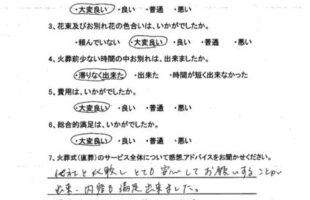 ・大変良い ・良い ・普通 ・悪い
3、花束及びお別れ花の色合いは、いかがでしたか。
・頼んでいない ・大変良い ・良い ・普通 ・悪い
4、火葬前少ない時間の中お別れは、出来ましたか。
・滞りなく出来た ・出来た ・時間が短く出来なかった
5、費用は、いかがでしたか。
・大変良い ・良い ・普通 ・悪い
6、総合的満足は、いかがでしたか。
・大変良い ・良い ・普通 ・悪い
7、火葬式(直葬)のサービス全体について感想、アドバイスをお聞かせください。
他社と比較しとても安心してお願いすることが
出来、内容も満足出来ました。